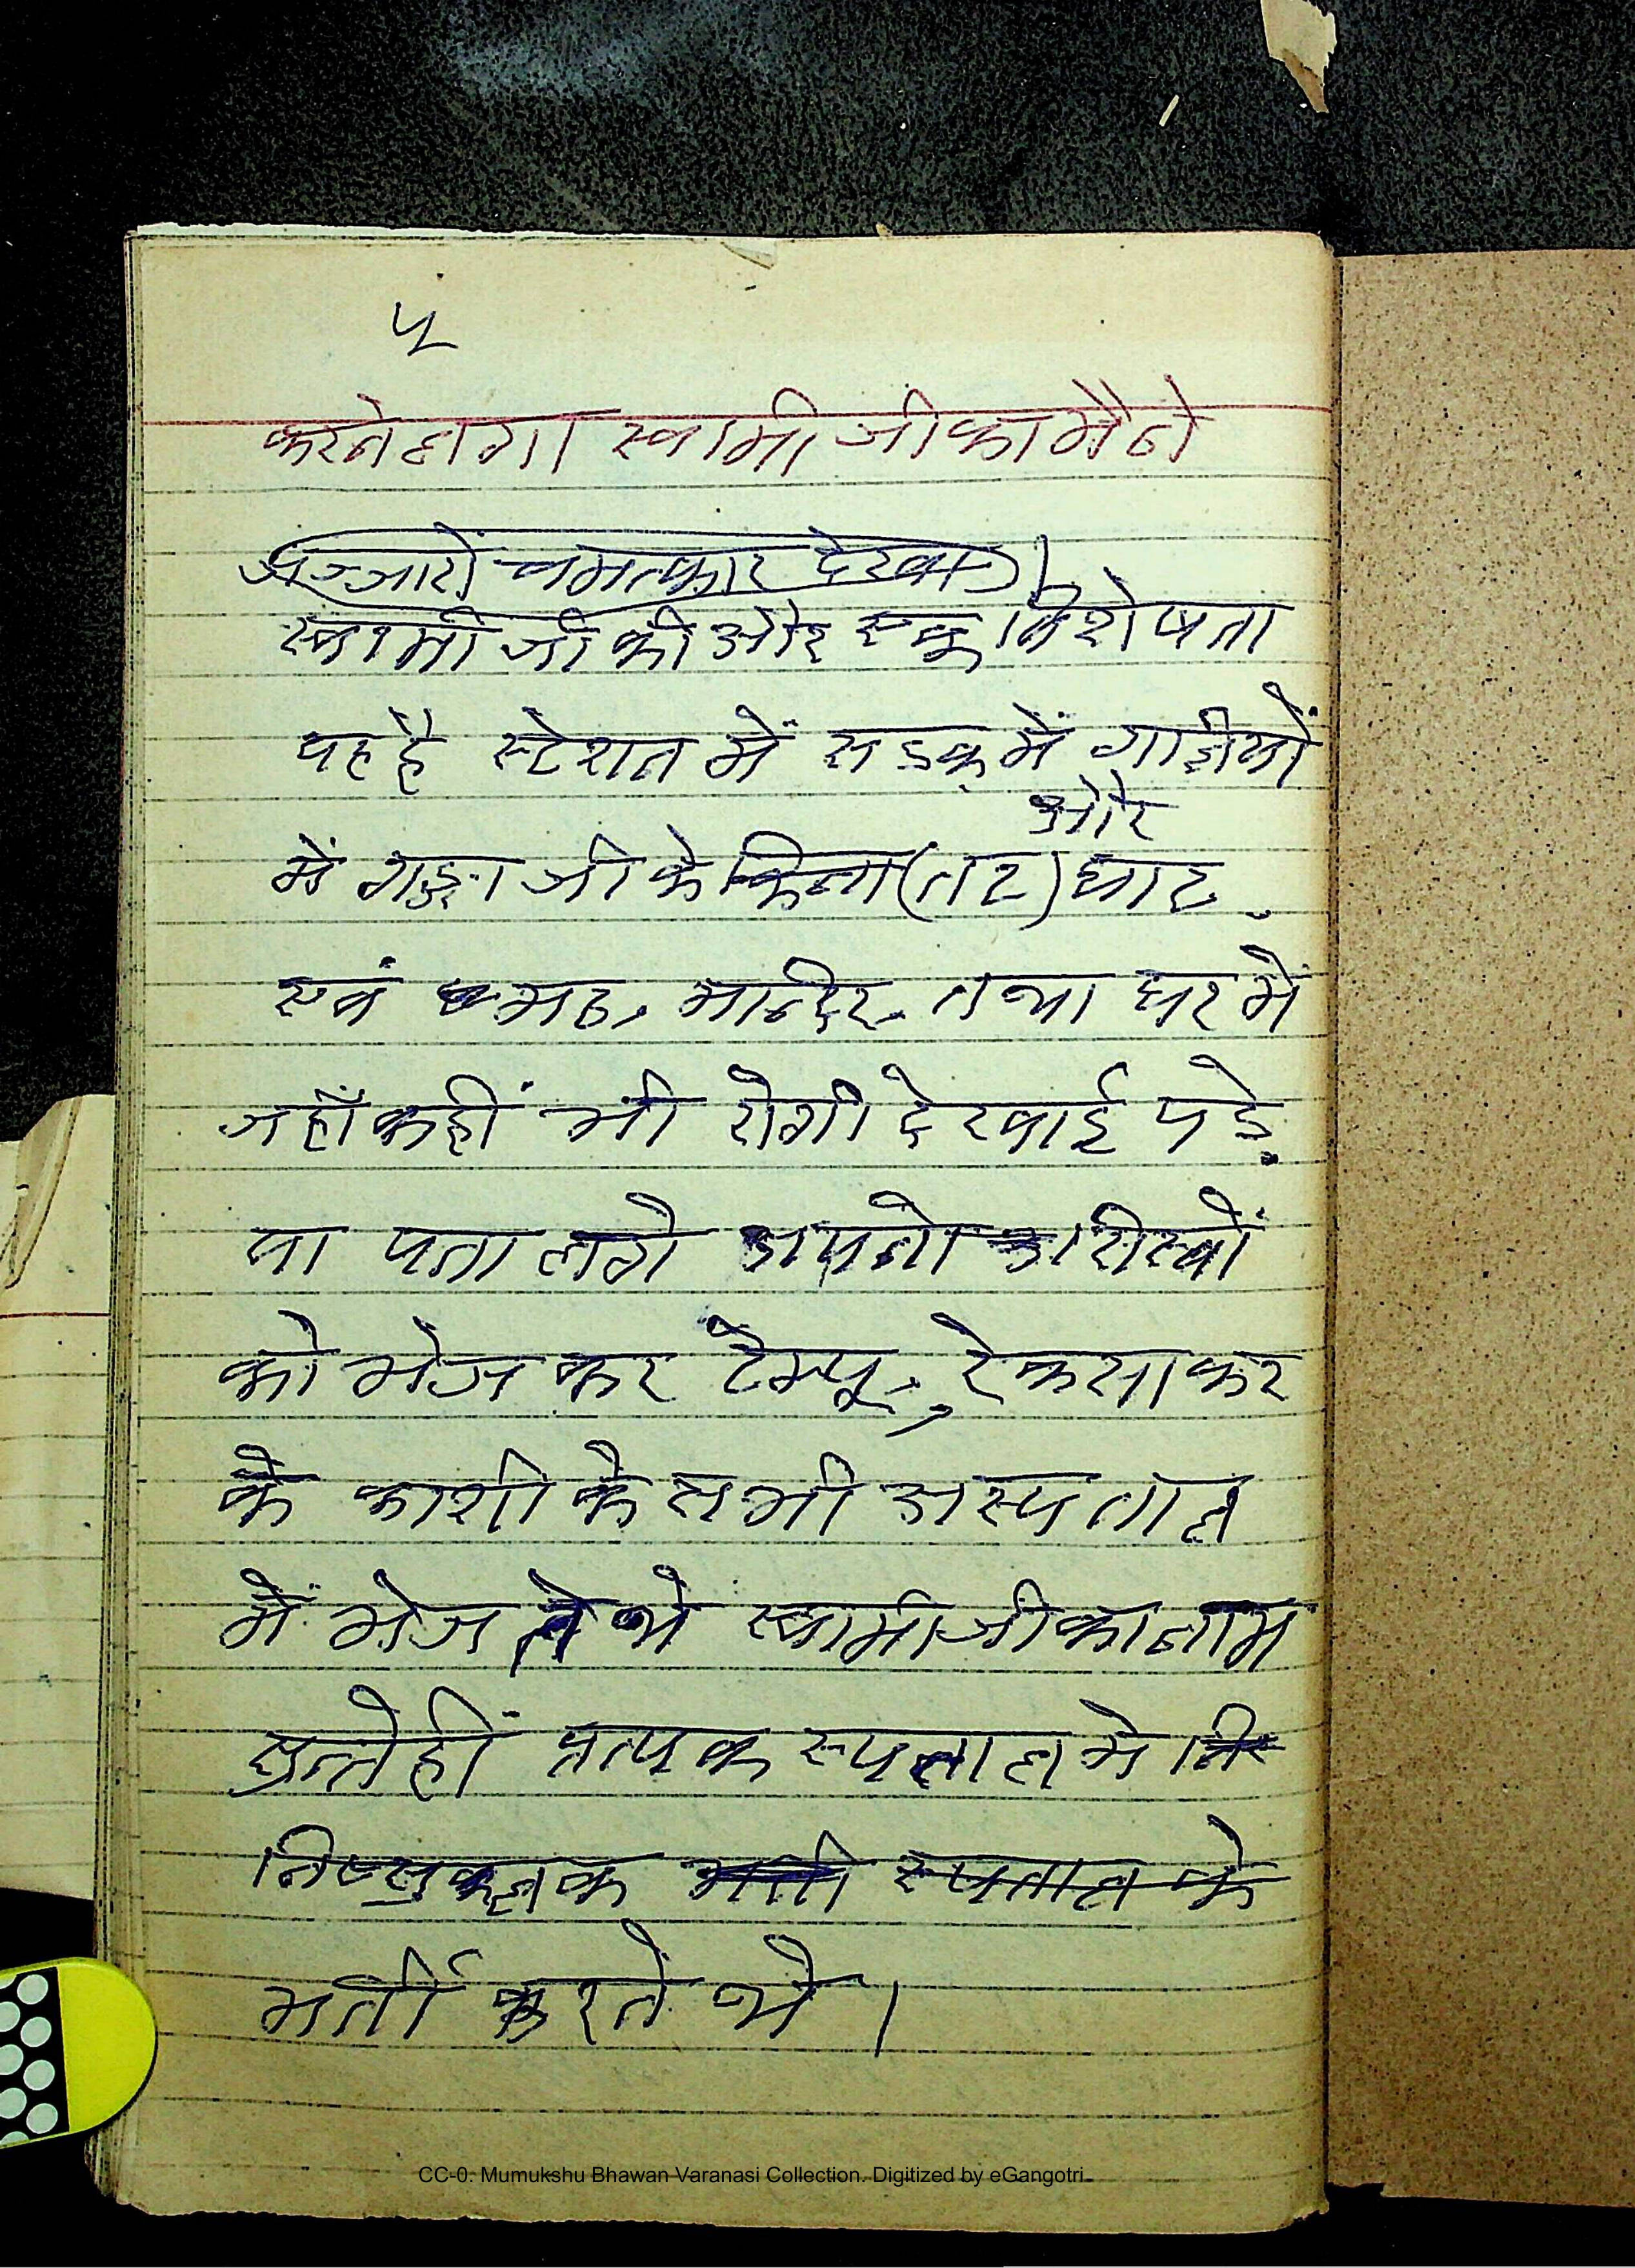 ५
करने लगा स्वामी जी का मैने
हज्जारों चमत्कार देखा।
स्वामी जी की और एक विशेषता
यह है स्टेशन में सडक में गाडीयों
और
में गङ्गा जी के किना (तट) घाट
एवं मठ, मान्दिर, तथा घर मे
जहाँ कहीं भी रोगी देखाई पडे
या पता लगे अपने
को भेज कर टेम्पू, रेकसा कर
के काशी के सभी अस्पताल
में भेजते थे स्वामी जी का नाम
सुन्तेहीं स्पताल मे
स्पताल के
भर्ती करते थे।
CC-0. Mumukshu Bhawan Varanasi Collection. Digitized by eGangotri